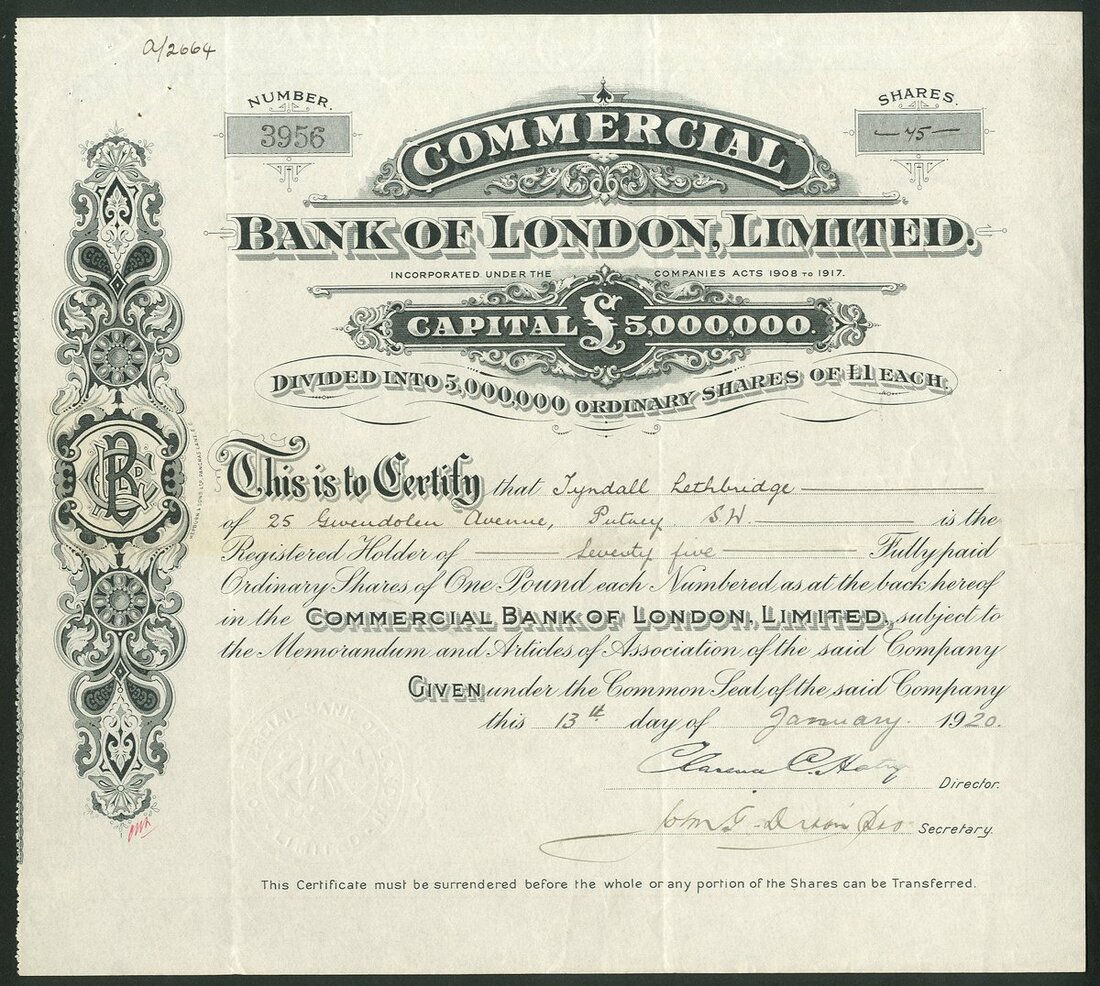 a/2664
NUMBER.
3956
SHARES.
75
COMMERCIAL
BANK OF LONDON, LIMITED.
INCORPORATED UNDER THE COMPANIES ACTS 1908 TO 1917.
CAPITAL £ 5,000,000.
DIVIDED INTO 5,000,000 ORDINARY SHARES OF £1 EACH.
This is to Certify that Tyndall Lethbridge
of 25 Gwendolen Avenue, Putney S.W. is the
Registered Holder of Seventy five Fully paid
Ordinary Shares of One Pound each Numbered as at the back hereof
in the COMMERCIAL BANK OF LONDON, LIMITED, subject to
the Memorandum and Articles of Association of the said Company
GIVEN under the Common Seal of the said Company
this 13th day of January 1920.
Clarence C. Hatry
Director.
Secretary.
This Certificate must be surrendered before the whole or any portion of the Shares can be Transferred.